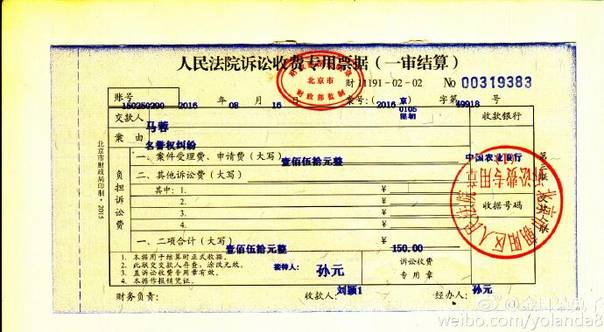 人民法院诉讼收费专用票据（一审结算）
北京市
财政部监制
财 11191-02-02 No 00319383
账号 150250200 2016 年 08 月 16 日 案号：(2016 京0105民初 ) 字第 49918 号
交款人 马蓉 收款银行
案由 名誉权纠纷
负担诉讼费
一、案件受理费、申请费（大写） 壹佰伍拾元整 中国农业银行
二、其他诉讼费（大写）
其中：1. ¥
2. ¥
3. ¥ 收据号码
4. ¥
一、二项合计（大写） 壹佰伍拾元整 ¥ 150.00
1. 本据用于结算时正式收据。
2. 此联交交款人存查，涂改无效。
3. 盖诉讼收费专用章有效。
4. 本据作报销凭证。
接待人： 孙元
诉讼收费
专用章
财务负责： 收款人： 刘颖1 经办人： 孙元
北京市财政局印制·2015
北京市朝阳区人民法院
诉讼费专用章
weibo.com/yolanda8